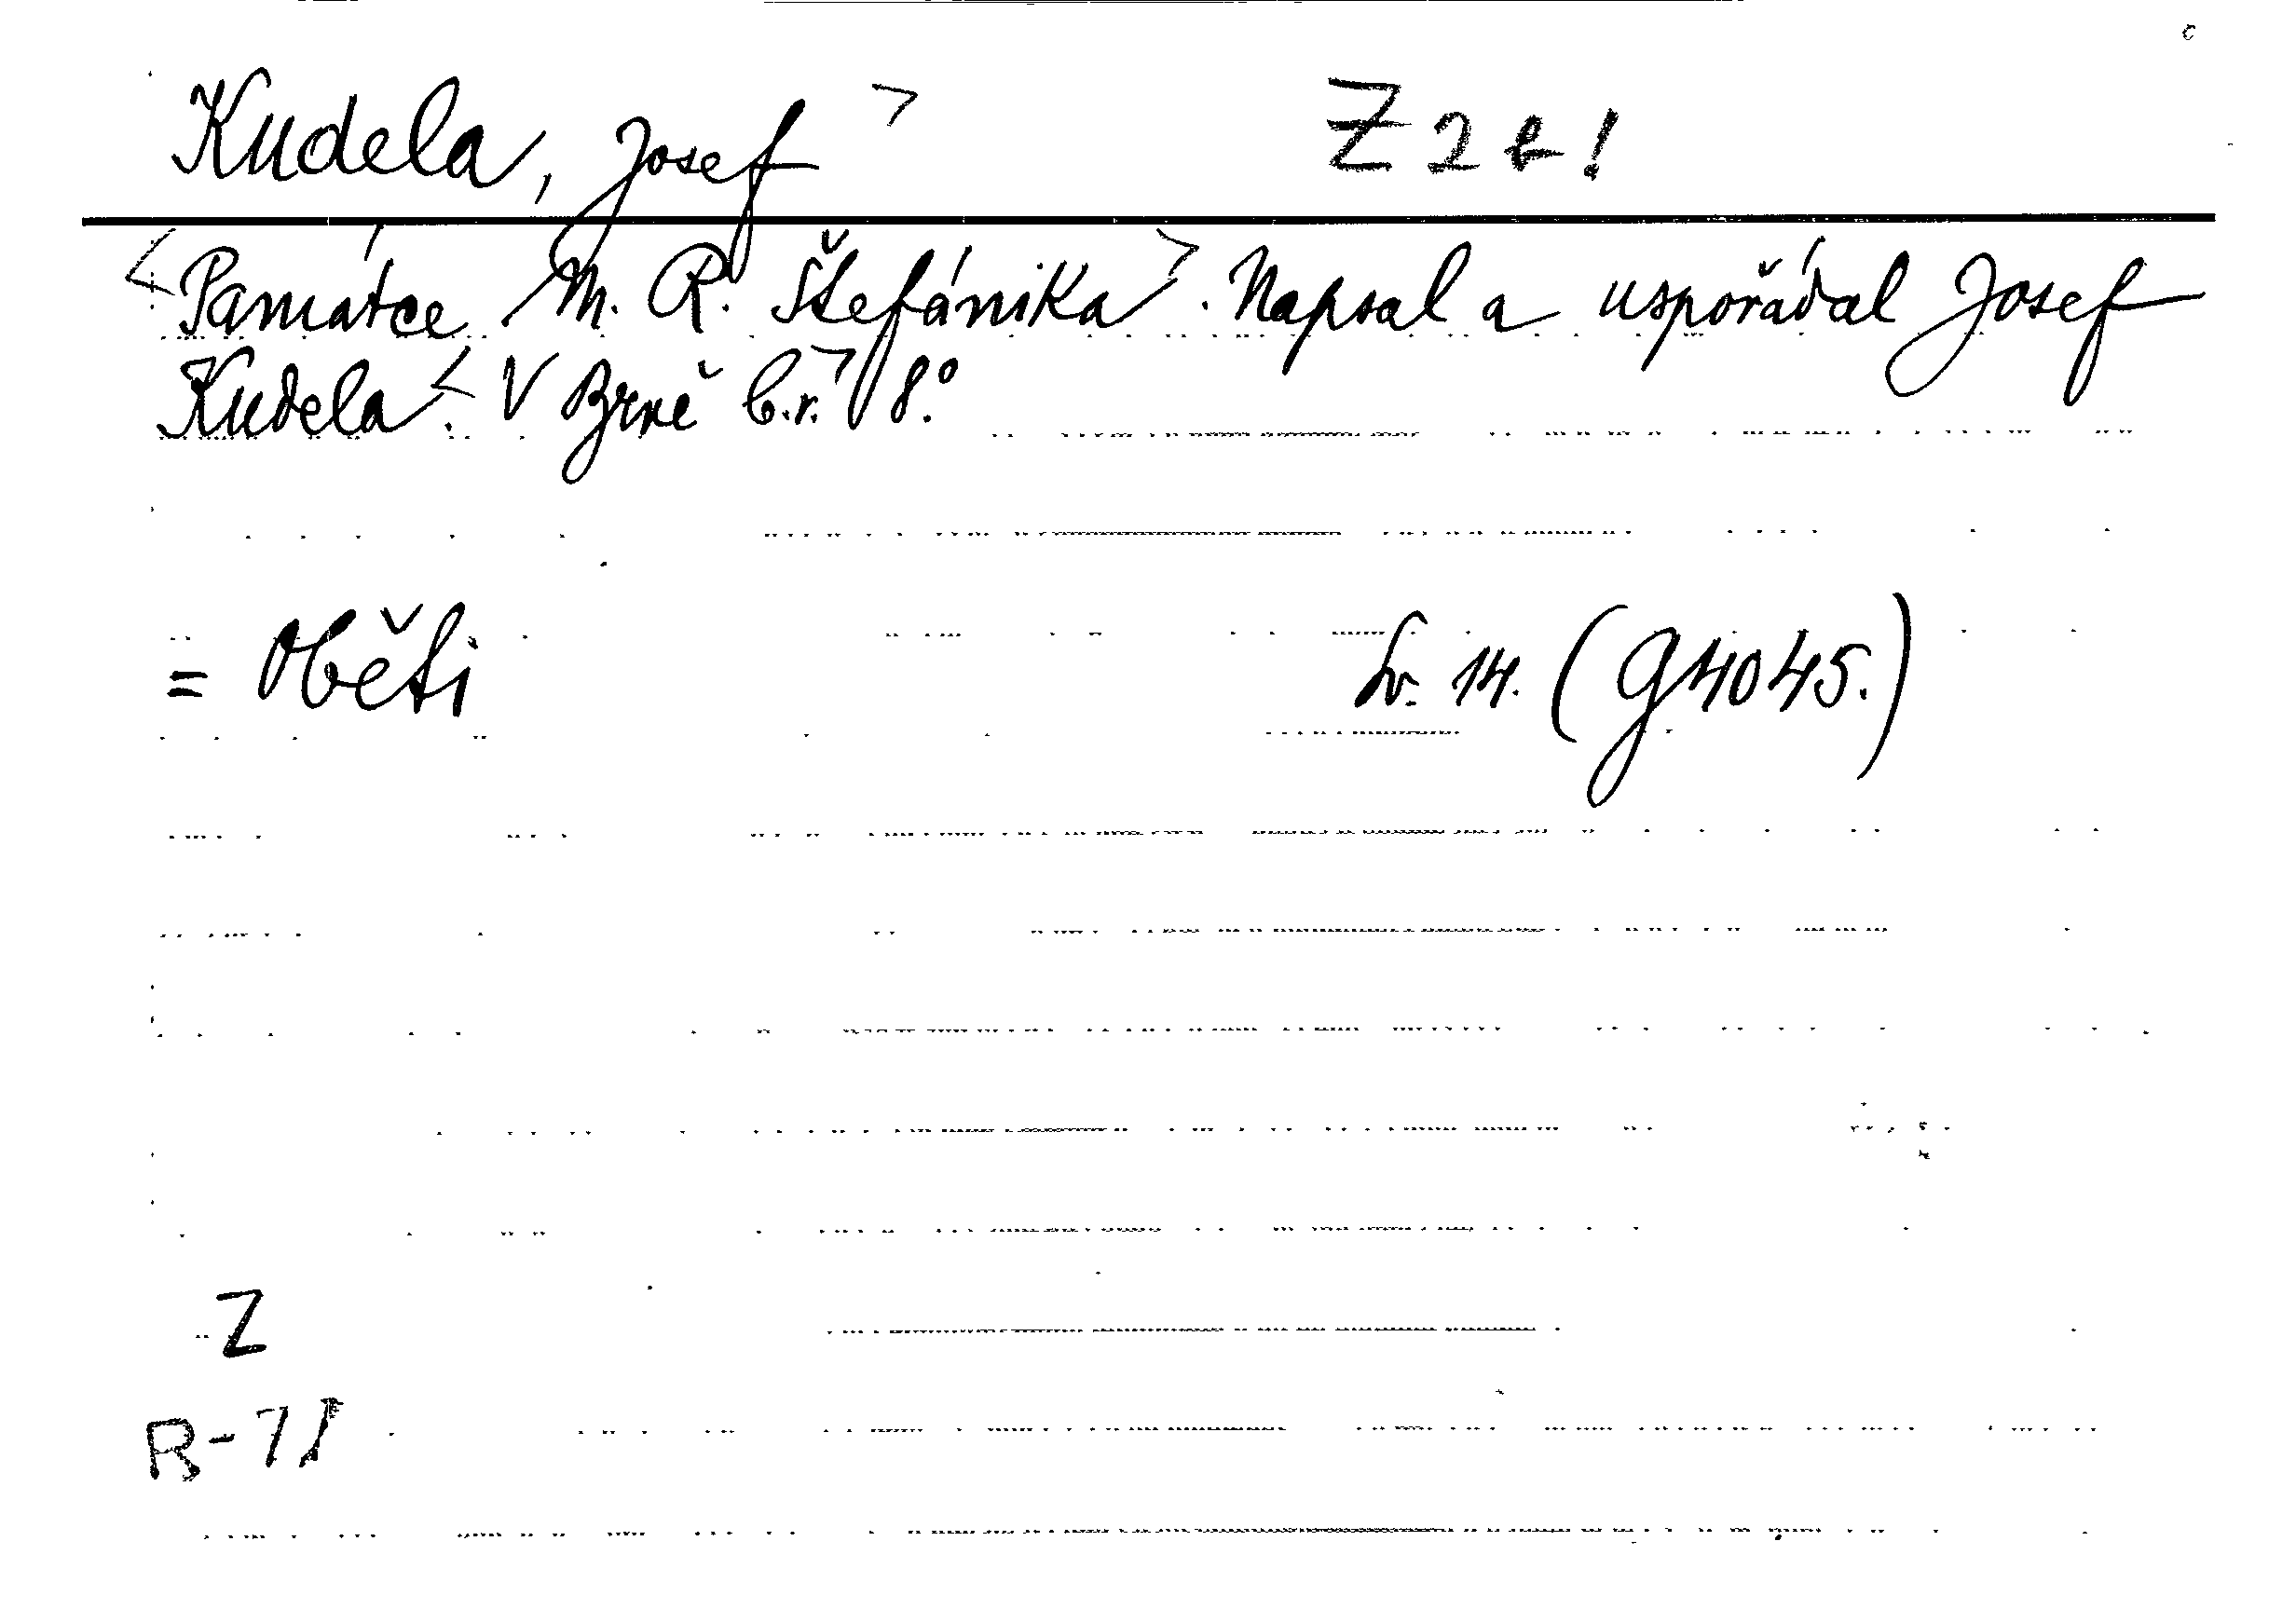 Kudela, Josef > Z 2 !
<Památce M. R. Štefánika>. Napsal a uspořádal Josef
Kudela<. V Brně b.r.> 8°.
= Oběti Sv. 14. (G 4045.)
Z
R-71